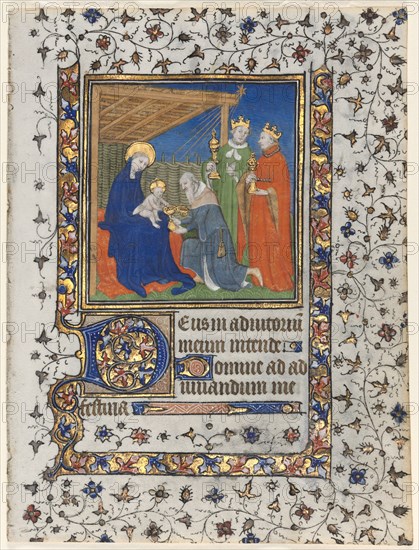 Deus in adiutoriū
meum intende:
Domine ad ad
iuuandum me
festina